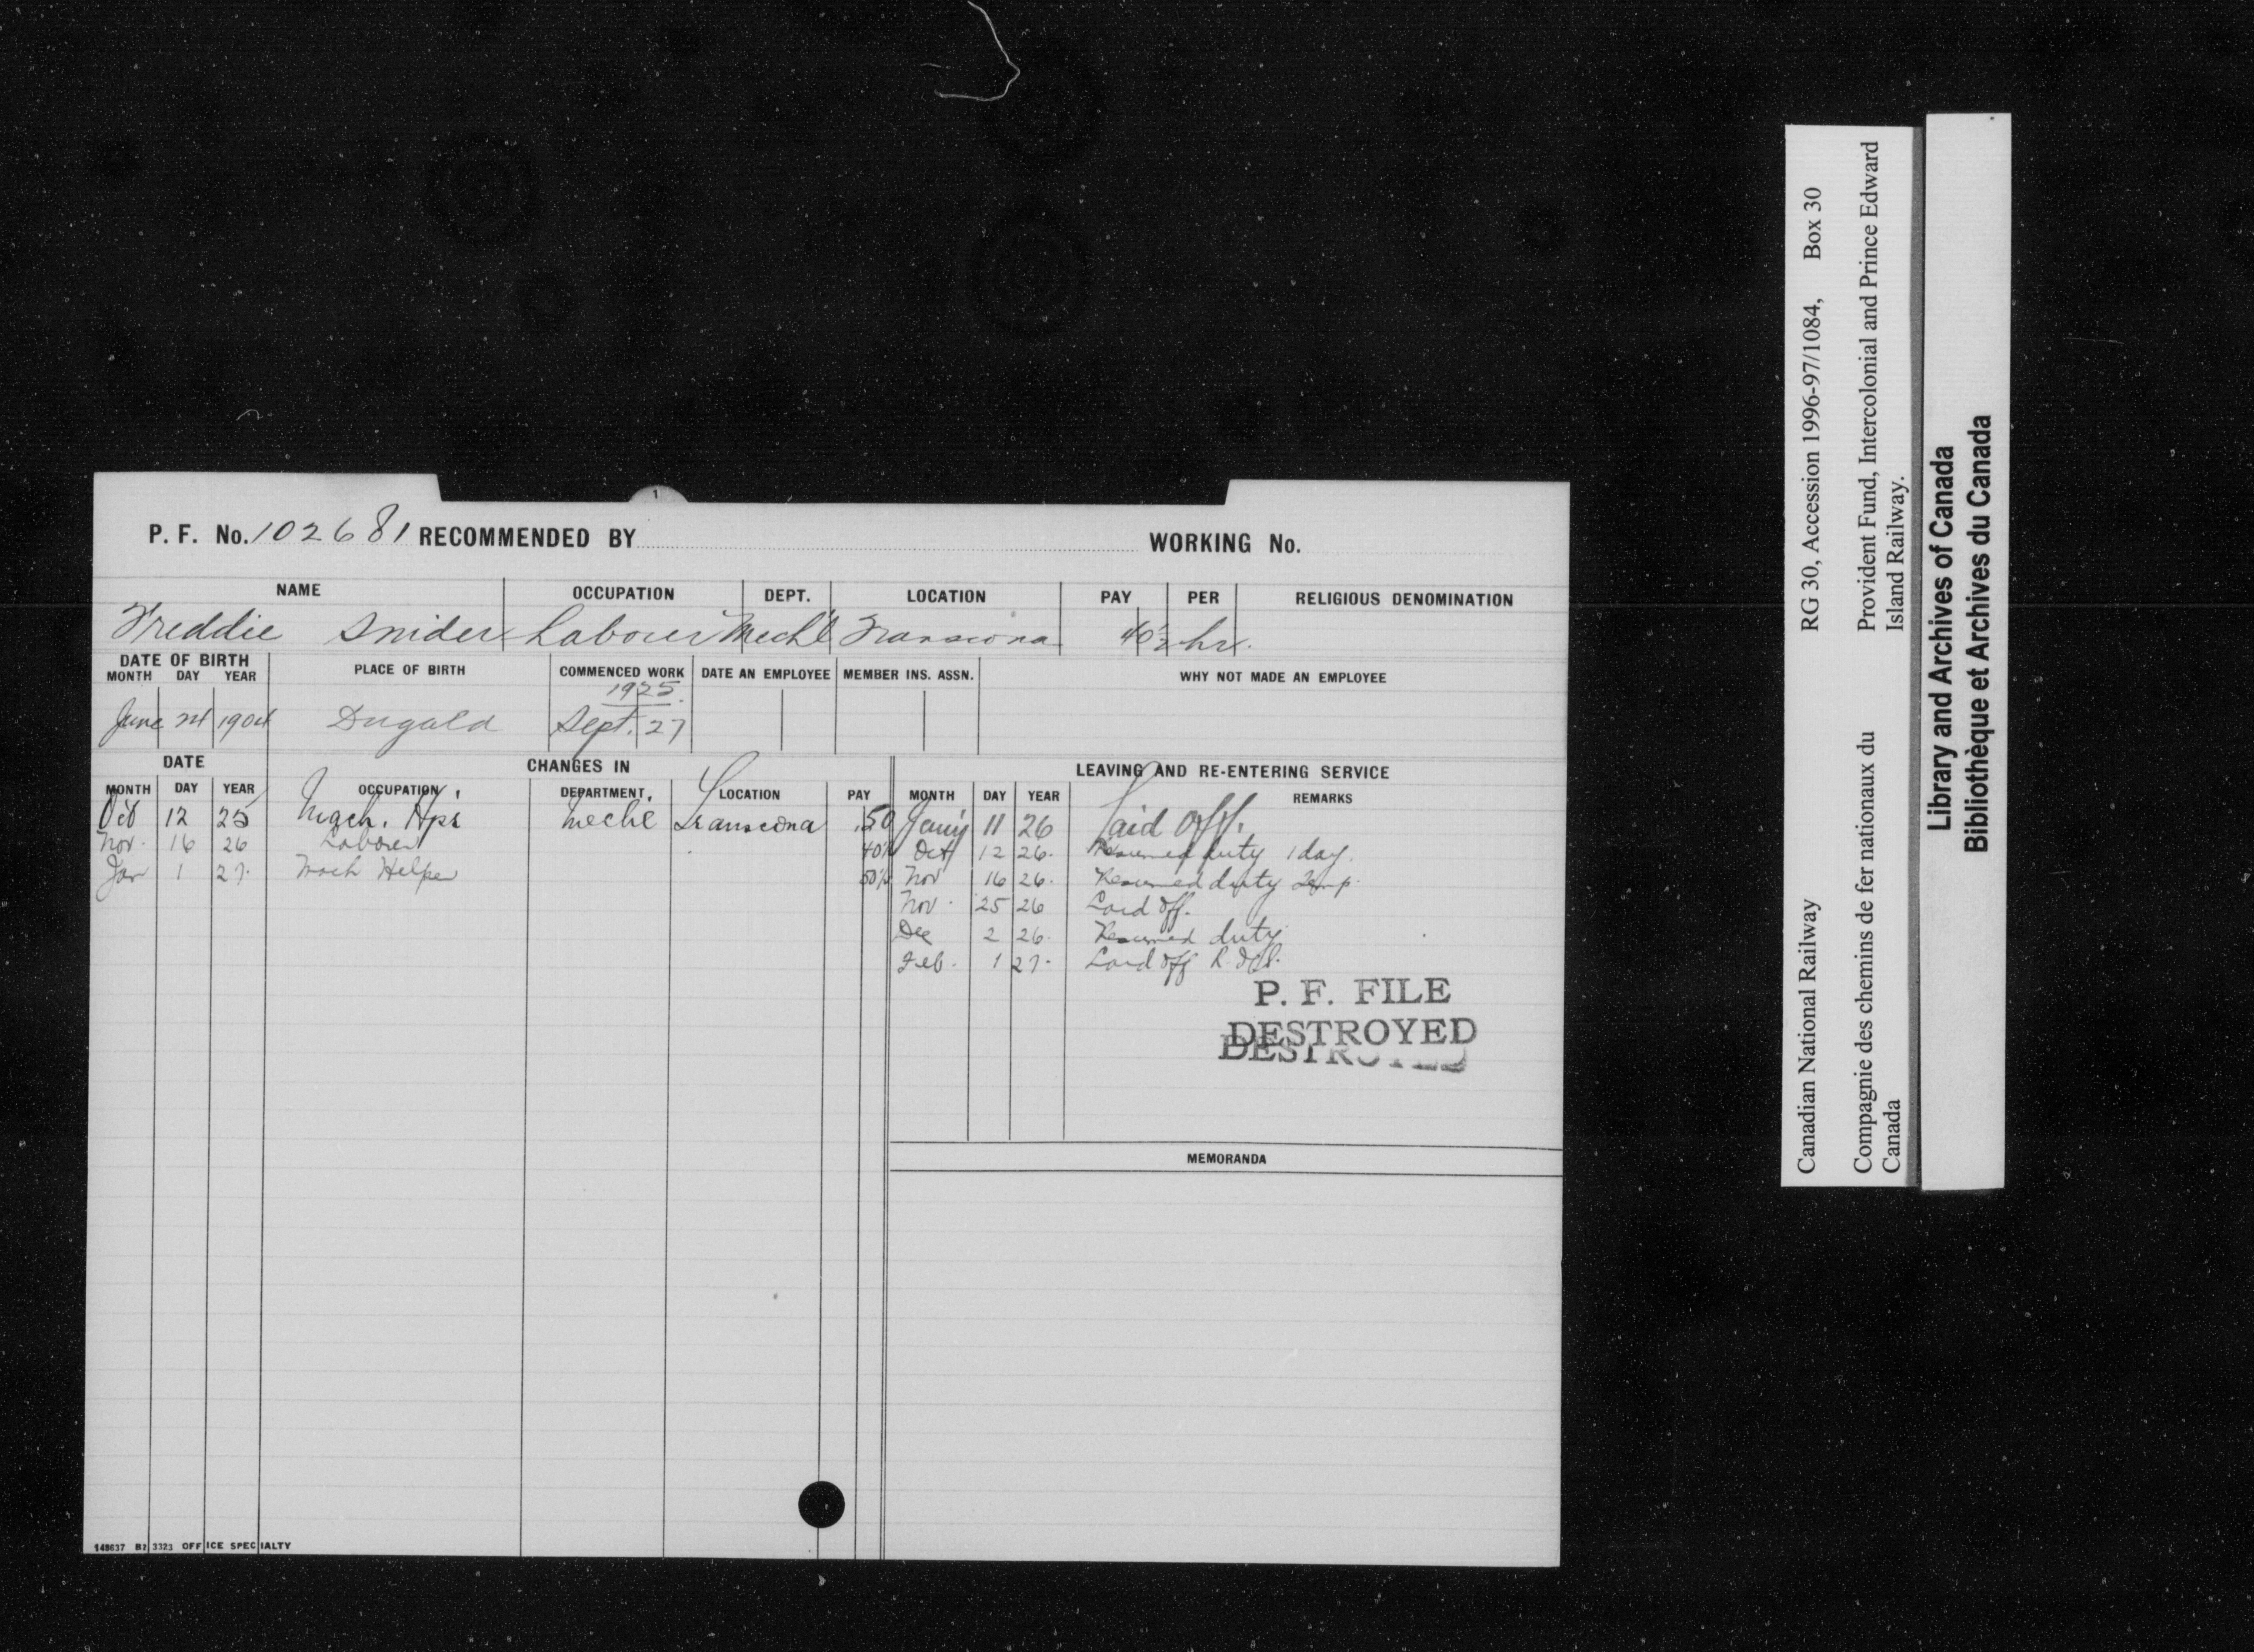 1
P. F. No. 102681 RECOMMENDED BY WORKING No.
NAME OCCUPATION DEPT. LOCATION PAY PER RELIGIOUS DENOMINATION
Freddie Snider Laborer Mechl Transcona 40½ hr.
DATE OF BIRTH PLACE OF BIRTH COMMENCED WORK DATE AN EMPLOYEE MEMBER INS. ASSN. WHY NOT MADE AN EMPLOYEE
MONTH DAY YEAR
1925
June 24 1904 Dugald Sept. 27
DATE CHANGES IN LEAVING AND RE-ENTERING SERVICE
MONTH DAY YEAR OCCUPATION DEPARTMENT LOCATION PAY MONTH DAY YEAR REMARKS
Oct 12 25 Mach. Hpr Mechl Transcona .50 Jan'y 11 26 Laid Off.
Nov. 16 26 Laborer 40½ Oct 12 26. Resumed duty 1 day.
Jan 1 27. Mach Helper 50½ Nov 16 26. Resumed duty Temp.
Nov. 25 26 Laid off.
Dec 2 26. Resumed duty
Feb. 1 27. Laid off
P. F. FILE
DESTROYED
DESTROYED
MEMORANDA
148637 B2 3323 OFFICE SPECIALTY
Canadian National Railway RG 30, Accession 1996-97/1084, Box 30
Compagnie des chemins de fer nationaux du Provident Fund, Intercolonial and Prince Edward
Canada Island Railway.
Library and Archives of Canada
Bibliothèque et Archives du Canada